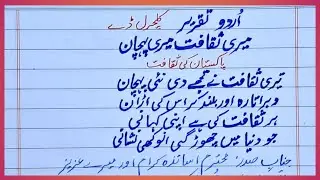 اُردو تقریر کلچرل ڈے
میری ثقافت میری پہچان
پاکستان کی ثقافت
تیری ثقافت نے تجھے دی نئی پہچان
ویرا تارہ اور بلند کر اس کی اُڑان
ہر ثقافت کی ہے اپنی کہانی
جو دنیا میں چھوڑ گئی انوکھی نشانی
جناب صدر محترم اساتذہ کرام اور میرے عزیز